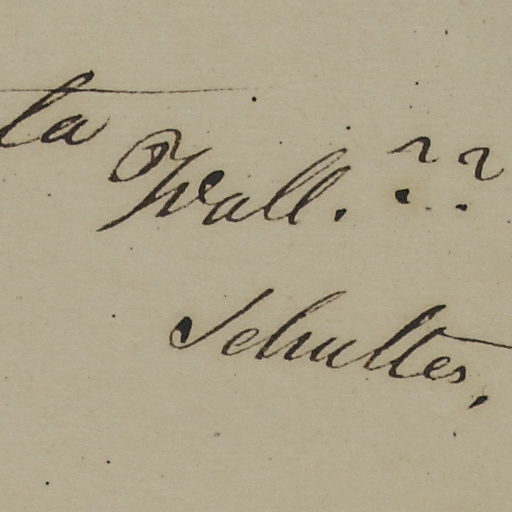 ta Wall. ??
Schultes.